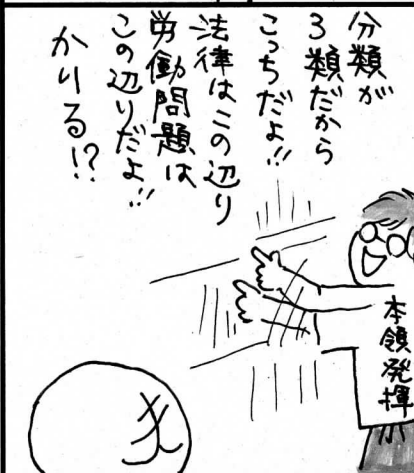 分類が
3類だから
こっちだよ!!
法律はこの辺り
労働問題は
この辺りだよ!!
かりる!?
本領発揮